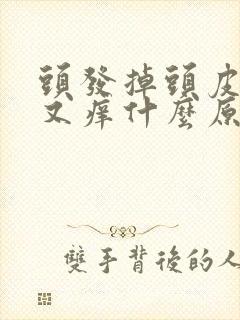 頭發掉頭皮
又痒什麼原
雙手背後的人